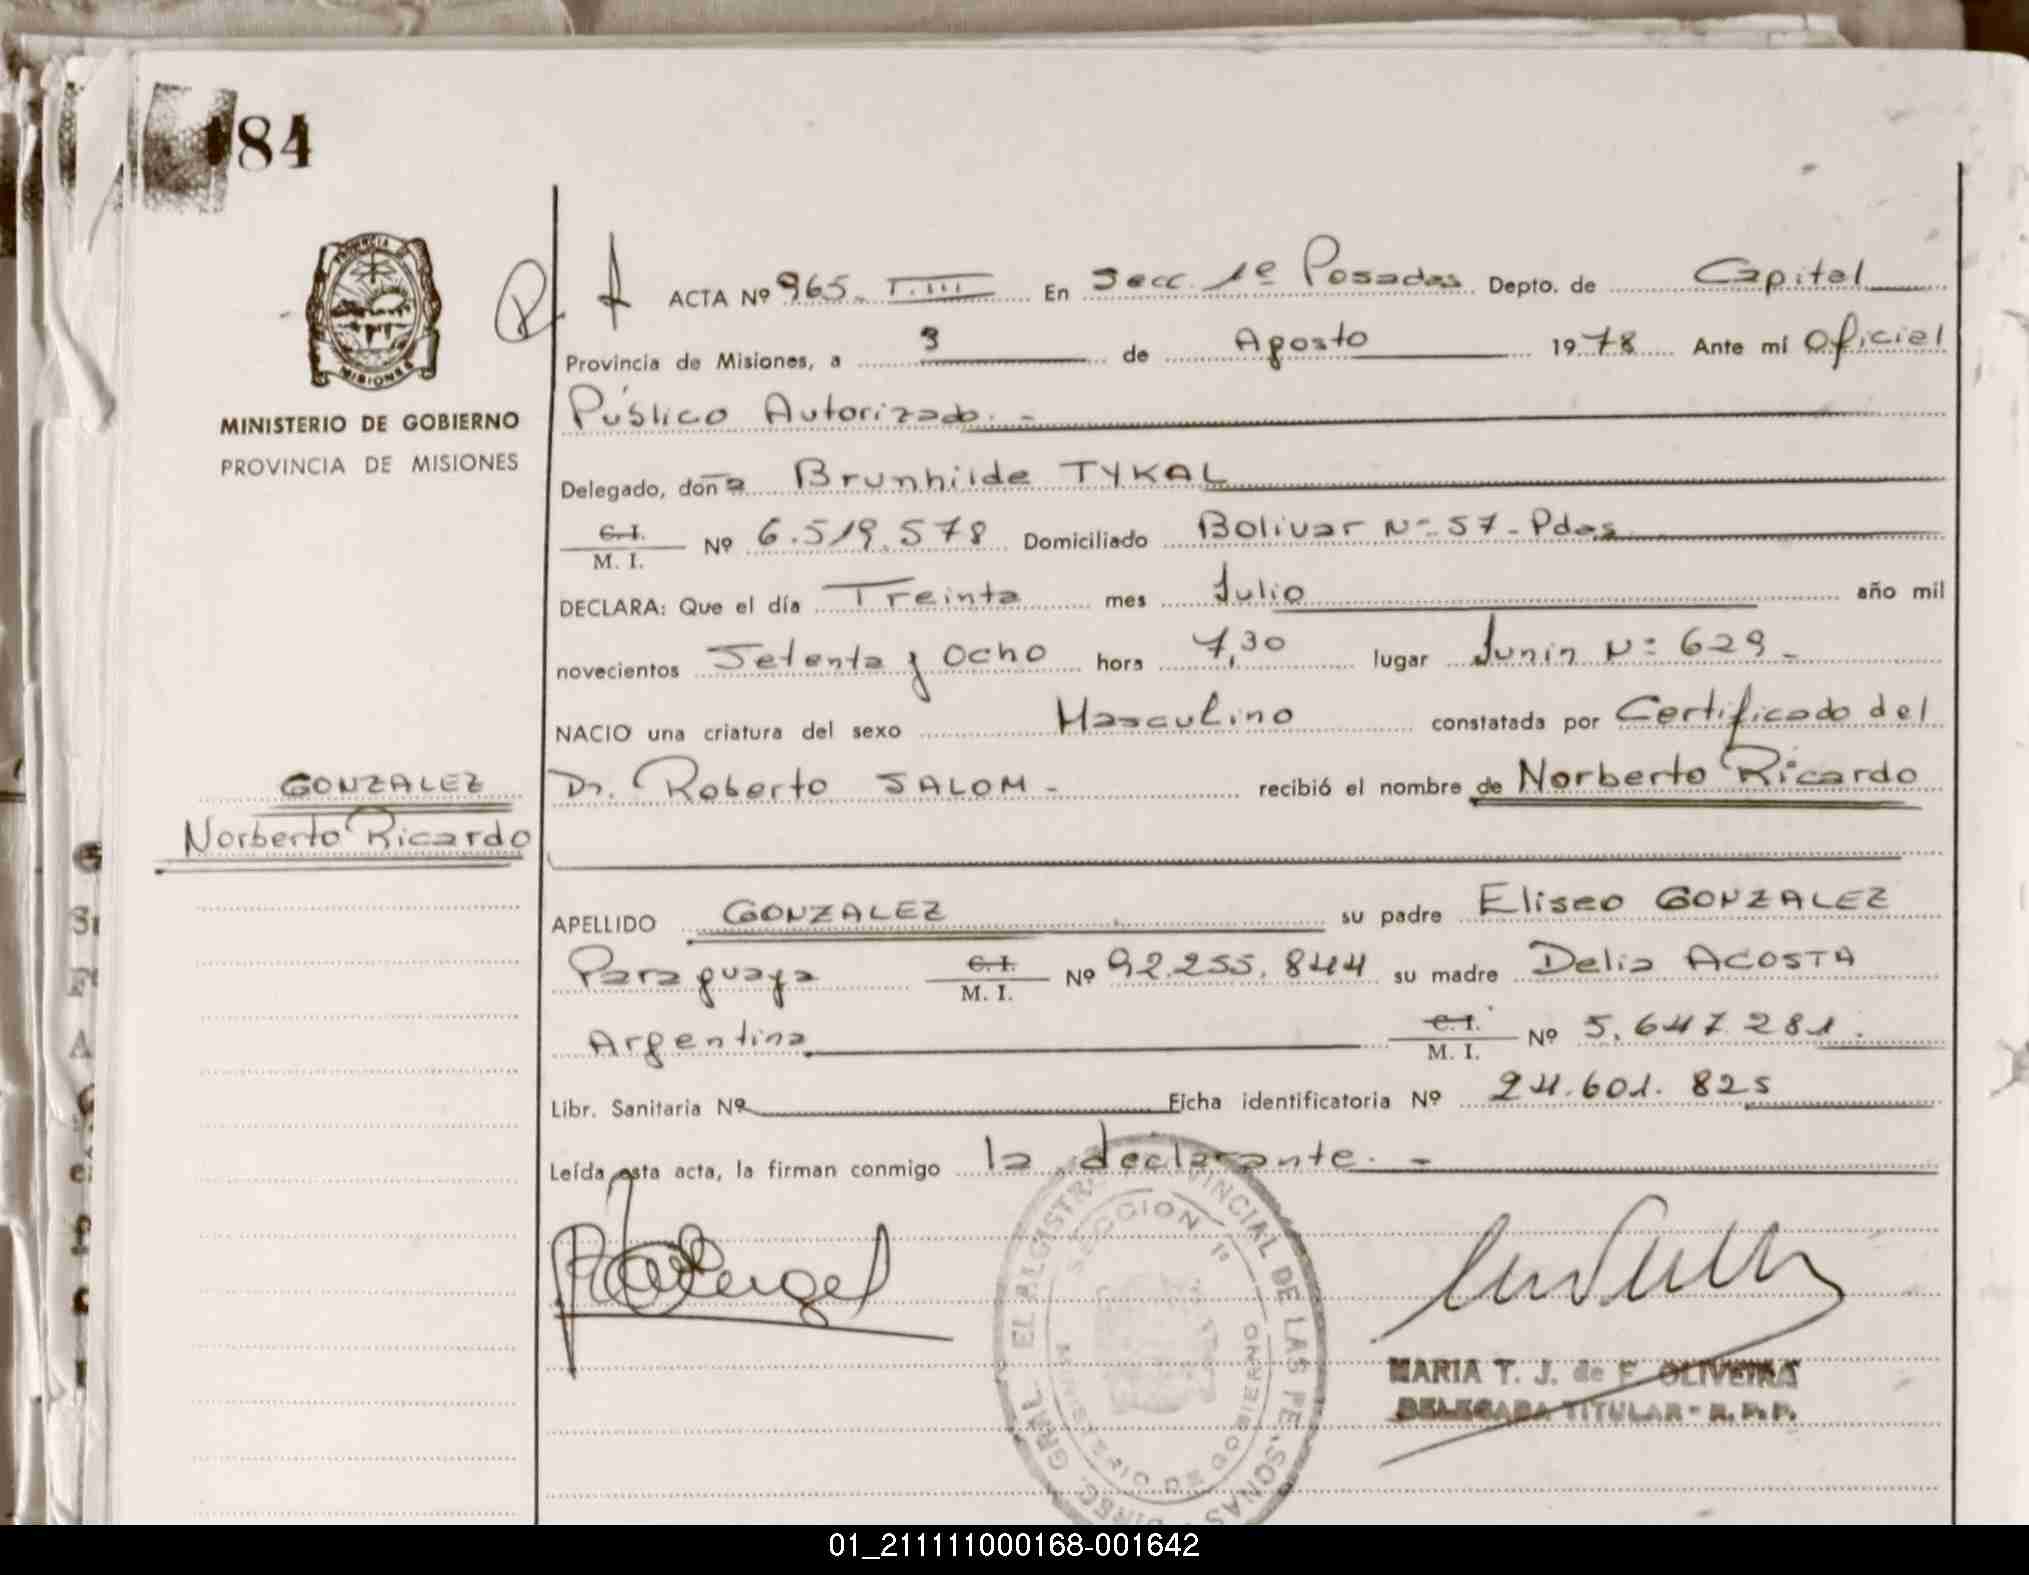 184
MINISTERIO DE GOBIERNO
PROVINCIA DE MISIONES
MISIONES
GONZALEZ
Norberto Ricardo
ACTA Nº 965. T. III En Secc. 1º Posadas Depto. de Capital
Provincia de Misiones, a 3 de Agosto 1978 Ante mí Oficial
Público Autorizado. -
Delegado, doña Brunhilde TYKAL
C. I. M. I. Nº 6.519.578 Domiciliado Bolivar Nº 57 - Pdas
DECLARA: Que el día Treinta mes Julio año mil
novecientos Setenta y Ocho hora 7,30 lugar Junin Nº 629 -
NACIO una criatura del sexo Masculino constatada por Certificado del
Dr. Roberto SALOM - recibió el nombre de Norberto Ricardo
APELLIDO GONZALEZ su padre Eliseo GONZALEZ
Paraguaya C. I. M. I. Nº 92.255.844 su madre Delia ACOSTA
Argentina C. I. M. I. Nº 5.647.281.
Libr. Sanitaria Nº Ficha identificatoria Nº 24.601.825
Leída esta acta, la firman conmigo la declarante. -
SECCION 1º
MINISTERIO DE GOBIERNO
MARIA T. J. de F. OLIVEIRA
DELEGADA TITULAR - R. P. P.
01_211111000168-001642